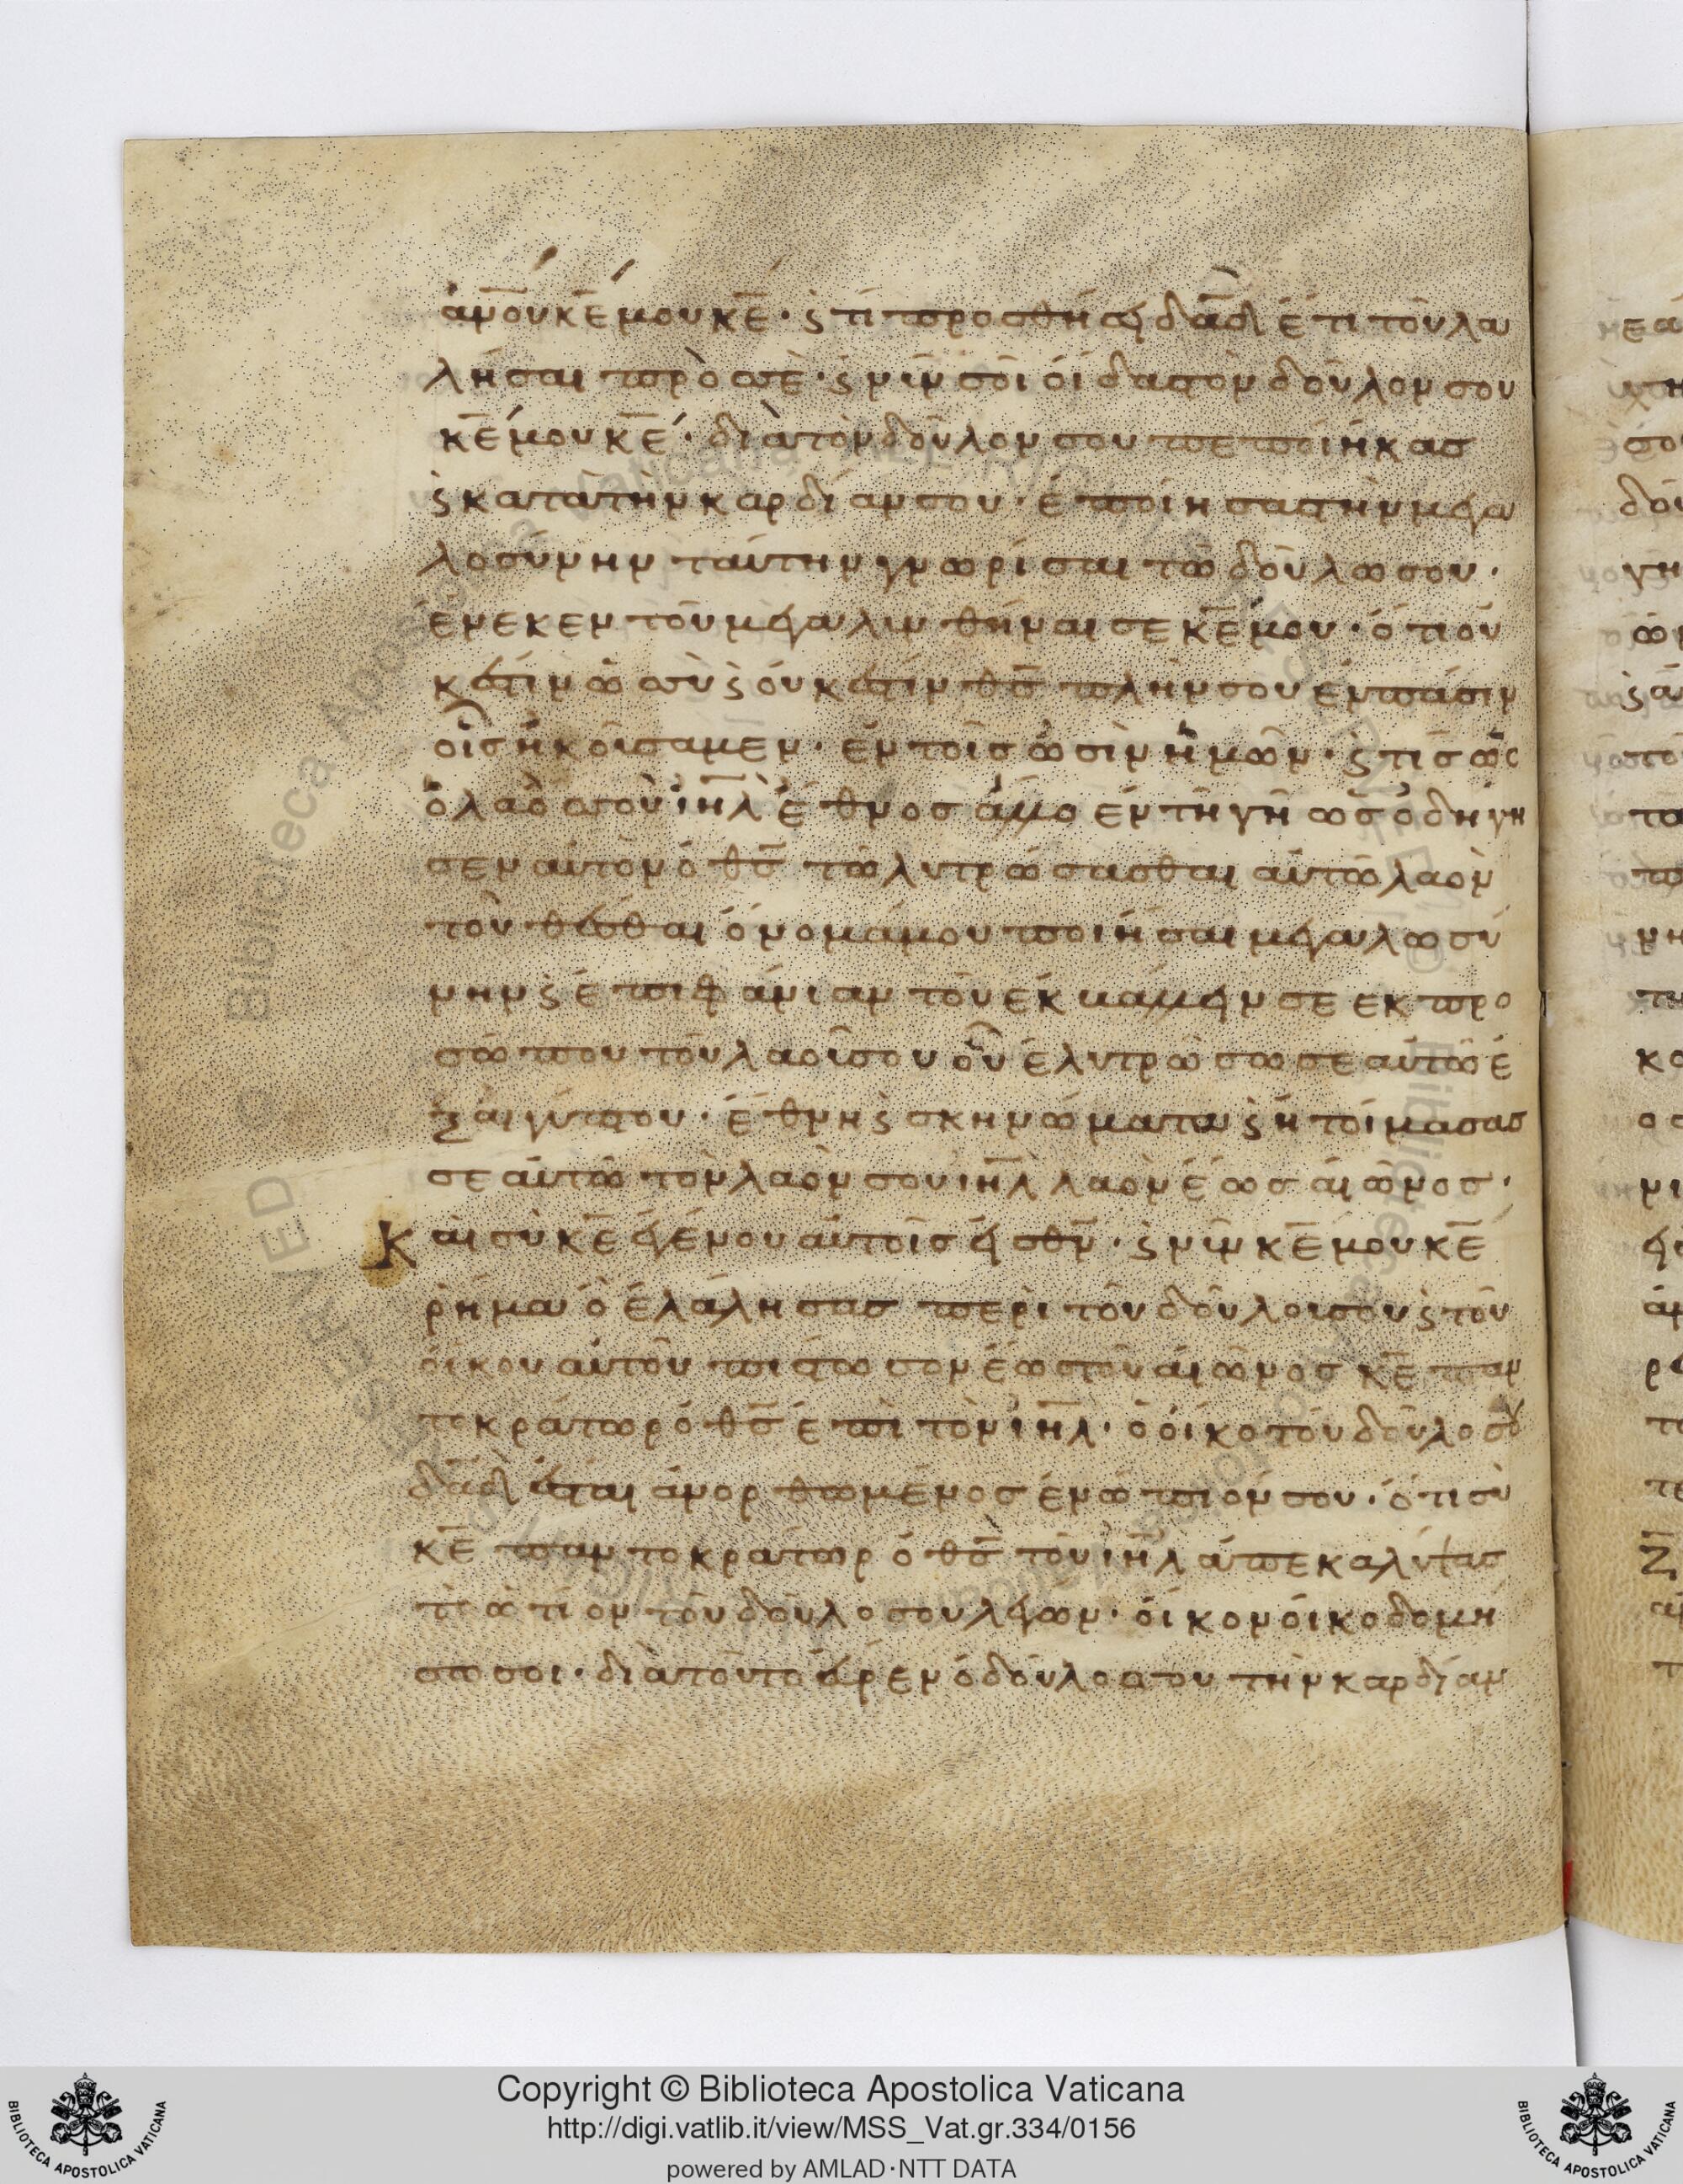 ἀν̅ου κ̅ε μου κ̅ε· ϛ τί προσθήσει δα̅δ ἔτι τοῦ λα
λῆσαι πρὸσ σὲ· ϛ νῦν σὺ οἶδασ τὸν δοῦλον σου
κ̅ε μου κ̅ε· διὰ τὸν δοῦλον σου πεποίηκασ
ϛ κατὰ τὴν καρδίαν σου· ἐποίησασ τὴν μεγα
λοσύνην ταύτην γνωρίσαι τῶ δούλω σου·
ἕνεκεν τοῦ μεγαλυνθῆναι σε κ̅ε μου· ὅτι οὐ
κ ἔστιν ὡσ σὺ ϛ οὐκ ἔστιν θ̅σ πλὴν σου ἐν πᾶσιν
οἷσ ἠκούσαμεν· ἐν τοῖσ ὠσὶν ἡμῶν· ϛ τίσ ὡσ
ὁ λαόσ σου ἰη̅λ ἔθνοσ ἄλλο ἐν τῆ γῆ ὡσ ὁδήγη
σεν αὐτὸν ὁ θ̅σ τῶ λυτρώσασθαι αὐτῶ λαὸν
τοῦ θέσθαι ὄνομά μου ποιῆσαι μεγαλωσύ
νην ϛ ἐπιφάνιαν τοῦ ἐκβαλλεῖν σε ἐκ προ
σώπου τοῦ λαοῦ σου οὗ ἐλυτρώσω σεαυτῶ ἐ
ξ αἰγύπτου· ἔθνη ϛ σκηνώματα ϛ ἡτοίμασασ
σεαυτῶ τὸν λαὸν σου ἰη̅λ λαὸν ἕωσ αἰῶνοσ·
Καὶ σὺ κ̅ε ἐγένου αὐτοῖσ εἰσ θ̅ν· ϛ νῦν κ̅ε μου κ̅ε
ρῆμα ὃ ἐλάλησασ περὶ τοῦ δούλου σου ϛ τοῦ
οἴκου αὐτοῦ πίστωσον ἕωσ τοῦ αἰῶνοσ κ̅ε παν
τοκράτωρ ὁ θ̅σ ἐπὶ τὸν ἰη̅λ· ὁ οἶκοσ τοῦ δούλου σου
δα̅δ ἔσται ἀνορθωμένοσ ἐνώπιον σου· ὅτι σὺ
κ̅ε παντοκράτωρ ὁ θ̅σ τοῦ ἰη̅λ ἀπεκαλύψασ
τὸ ὠτίον τοῦ δούλου σου λέγων· οἶκον οἰκοδομή
σω σοι· διὰ τοῦτο εὗρεν ὁ δοῦλοσ σου τὴν καρδίαν
Copyright © Biblioteca Apostolica Vaticana
http://digi.vatlib.it/view/MSS_Vat.gr.334/0156
powered by AMLAD·NTT DATA
BIBLIOTECA APOSTOLICA VATICANA
BIBLIOTECA APOSTOLICA VATICANA